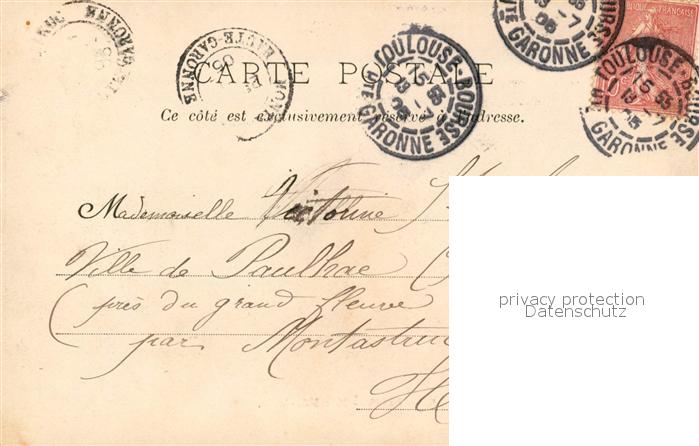 CARTE POSTALE
Ce côté est exclusivement réservé à l'adresse.
TOULOUSE-BOURSE
HTE GARONNE
GARONNE
TOULOUSE-BOURSE
HTE GARONNE
HAUTE-GARONNE
GARONNE
Mademoiselle Victorine
Ville de Paulhac
(près du grand fleuve
par Montastruc
privacy protection
Datenschutz